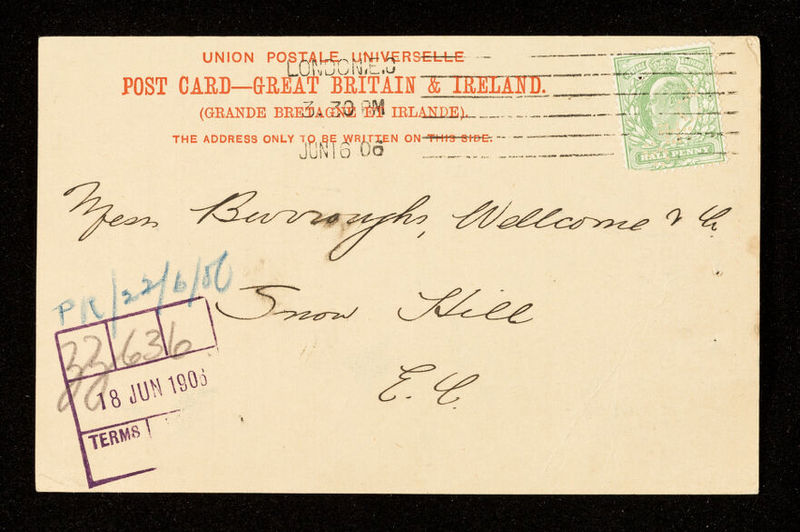 UNION POSTALE UNIVERSELLE
POST CARD—GREAT BRITAIN & IRELAND.
(GRANDE BRETAGNE ET IRLANDE).
THE ADDRESS ONLY TO BE WRITTEN ON THIS SIDE.
LONDON. E.C
3. 30 PM
JUN 16 06
HALF PENNY
Messrs Burroughs, Wellcome & Co
Snow Hill
E. C.
PR/22/6/06
33.636
18 JUN 1906
TERMS